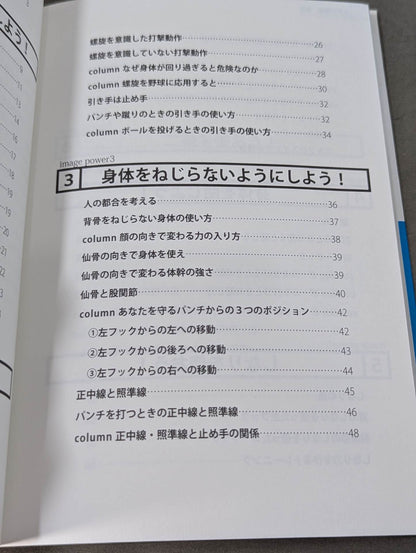 螺旋を意識した打撃動作 26
螺旋を意識していない打撃動作 27
column なぜ身体が回り過ぎると危険なのか 28
column 螺旋を野球に応用すると 30
引き手は止め手 32
パンチや蹴りのときの引き手の使い方 32
column ボールを投げるときの引き手の使い方 34
image power3
3 身体をねじらないようにしよう！
人の都合を考える 36
背骨をねじらない身体の使い方 37
column 顔の向きで変わる力の入り方 38
仙骨の向きで身体を使え 39
仙骨の向きで変わる体幹の強さ 39
仙骨と股関節 40
column あなたを守るパンチからの3つのポジション 42
①左フックからの左への移動 42
②左フックからの後ろへの移動 43
③左フックからの右への移動 44
正中線と照準線 45
パンチを打つときの正中線と照準線 46
column 正中線・照準線と止め手の関係 48